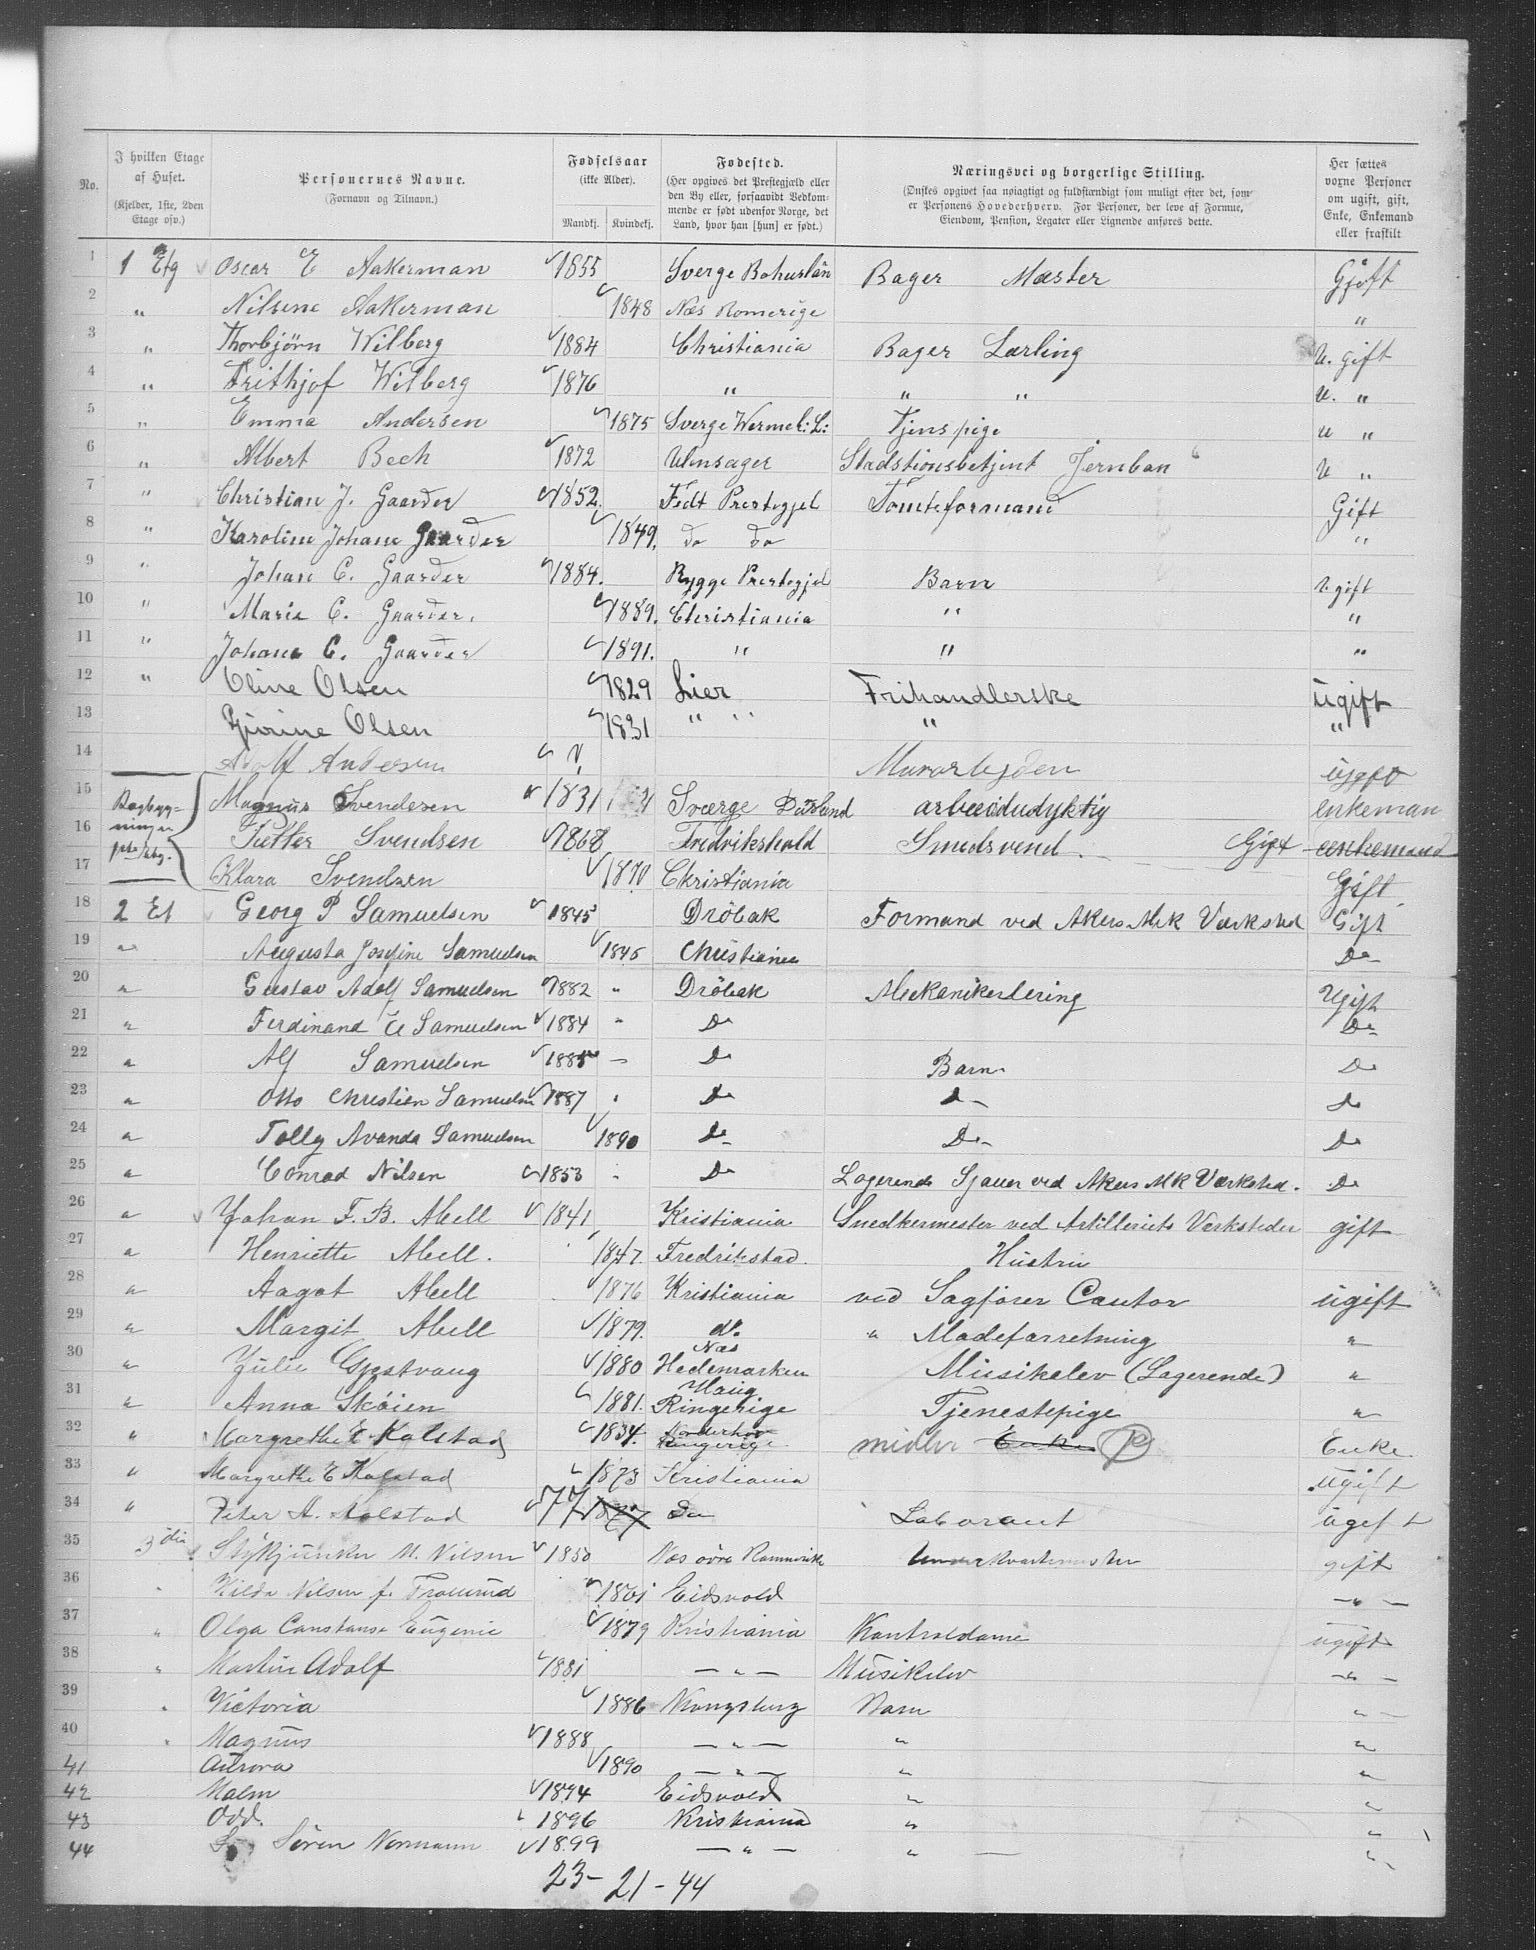 No.
I hvilken Etage af Huset.
(Kjelder, 1ste, 2den Etage osv.)
Personernes Navne.
(Fornavn og Tilnavn.)
Fødselsaar
(ikke Alder).
Mandkj. Kvindekj.
Fødested.
(Her opgives det Prestegjæld eller den By eller, forsaavidt Vedkommende er født udenfor Norge, det Land, hvor han [hun] er født.)
Næringsvei og borgerlige Stilling.
(Ønskes opgivet saa nøiagtigt og fuldstændigt som muligt efter det, som er Personens Hovederhverv. For Personer, der leve af Formue, Eiendom, Pension, Legater eller Lignende anføres dette.
Her sættes voxne Personer om ugift, gift, Enke, Enkemand eller fraskilt
1 1 Etg Oscar E Aakerman 1855 Sverge Bohuslän Bager Mæster Gjift
2 " Nilsene Aakerman 1848 Næs Romerige "
3 " Thorbjörn Wilberg 1884 Christiania Bager Lærling U. gift
4 " Frithjof Wilberg 1876 " " " U. "
5 " Emma Andersen 1875 Sverge Wermel: L: Tjenspige u "
6 " Albert Bech 1872 Ulnsager Stadstionsbetjent Jernban U "
7 " Christian J. Gaarder 1852. Fedt Prestegjel Tomteformand Gift
8 " Karoline Johane Gaarder 1849. do do "
9 " Johan C. Gaarder 1884. Rygge Prestegjel Barn U. gift
10 " Marie C. Gaarder. 1889. Christiania " "
11 " Johane C. Gaarder 1891. " " "
12 " Oline Olsen 1829 Lier Frihandlerske ugift
13 Olsen 1831 " " " "
14 Adolf Andersen Murarbejden ugift
15 Bagbyg= Magnus Svendsen 1831 Sværge Dalsland arbeidudyktig enkeman
16 ningen Petter Svendsen 1868 Fredrikshald Smedsvend. Gift enkemand
17 Klara Svendsen 1870 Christiania Gift
18 2 Et Georg P Samuelsen 1845 Dröbak Formand ved Akers Mek Værksted Gift
19 " Augusta Josefine Samuelsen 1845 Christiania Do
20 " Gustav Adolf Samuelsen 1882 " Dröbak Mekanikerlering Ugift
21 " Ferdinand E Samuelsen 1884 " Do Do
22 " Alf Samuelsen 1885 — Do Barn Do
23 " Otto Christian Samuelsen 1887 " Do Do Do
24 " Tolly Avanda Samuelsen 1890 Do Do Do
25 " Conrad Nilsen 1853 " Do Logerende Sjauer ved Akers Mk Værksted. Do
26 " Johan F. B. Abell 1841 Kristiania Snedkermester ved Artilleriets Værksteder gift
27 " Henriette Abell. 1847. Fredrikstad. Hustru
28 " Aagot Abell 1876 Kristiania ved Sagfører Contor ugift
29 " Margit Abell 1879. do. " Modeforretning "
30 " Julie Gjestvang 1880 Næs Hedemarken Musikelev (Logerende) "
31 " Anna Skøien 1881. Haug Ringerige Tjenestepige "
32 " Margrethe E Kolstad 1834. Norderhov Ringerige midler Enke P Enke
33 " Margrethe E Kolstad 1873 Kristiania ugift
34 " Peter A. Kolstad 77 1877 Do Laborant ugift
35 3 die Stykjunker M. Nilsen 1850 Næs øvre Romerike Underkvartermester gift
36 " Hilda Nilsen f. 1861 Eidsvold — " —
37 " Olga Constanse Eugenie 1879 Kristiania Kontroldame ugift
38 " Martin Adolf 1881 — " — Musikelev — " —
39 " Victoria 1886 Kongsberg Barn " —
40 " Magnus 1888 — " — " "
41 Aurora 1890 — " — " "
42 Malm 1894 Eidsvold " "
43 Odd. 1896 Kristiania " "
44 Sören Normann 1899 — " — " — "
23 - 21 - 44